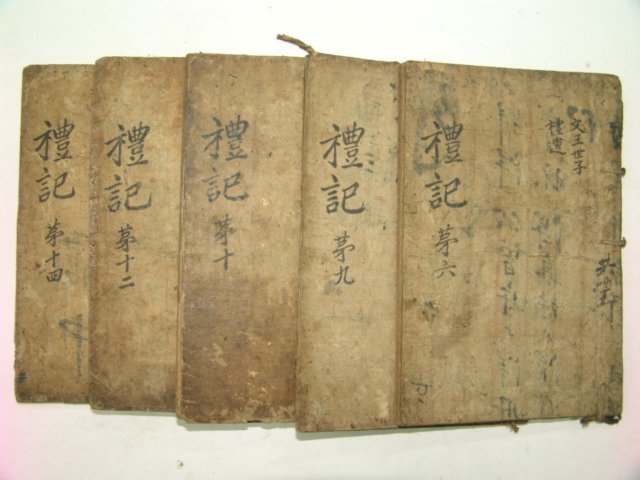 文王世子
禮運
禮記 第六
禮記 第九
禮記 第十
禮記 第十二
禮記 第十四